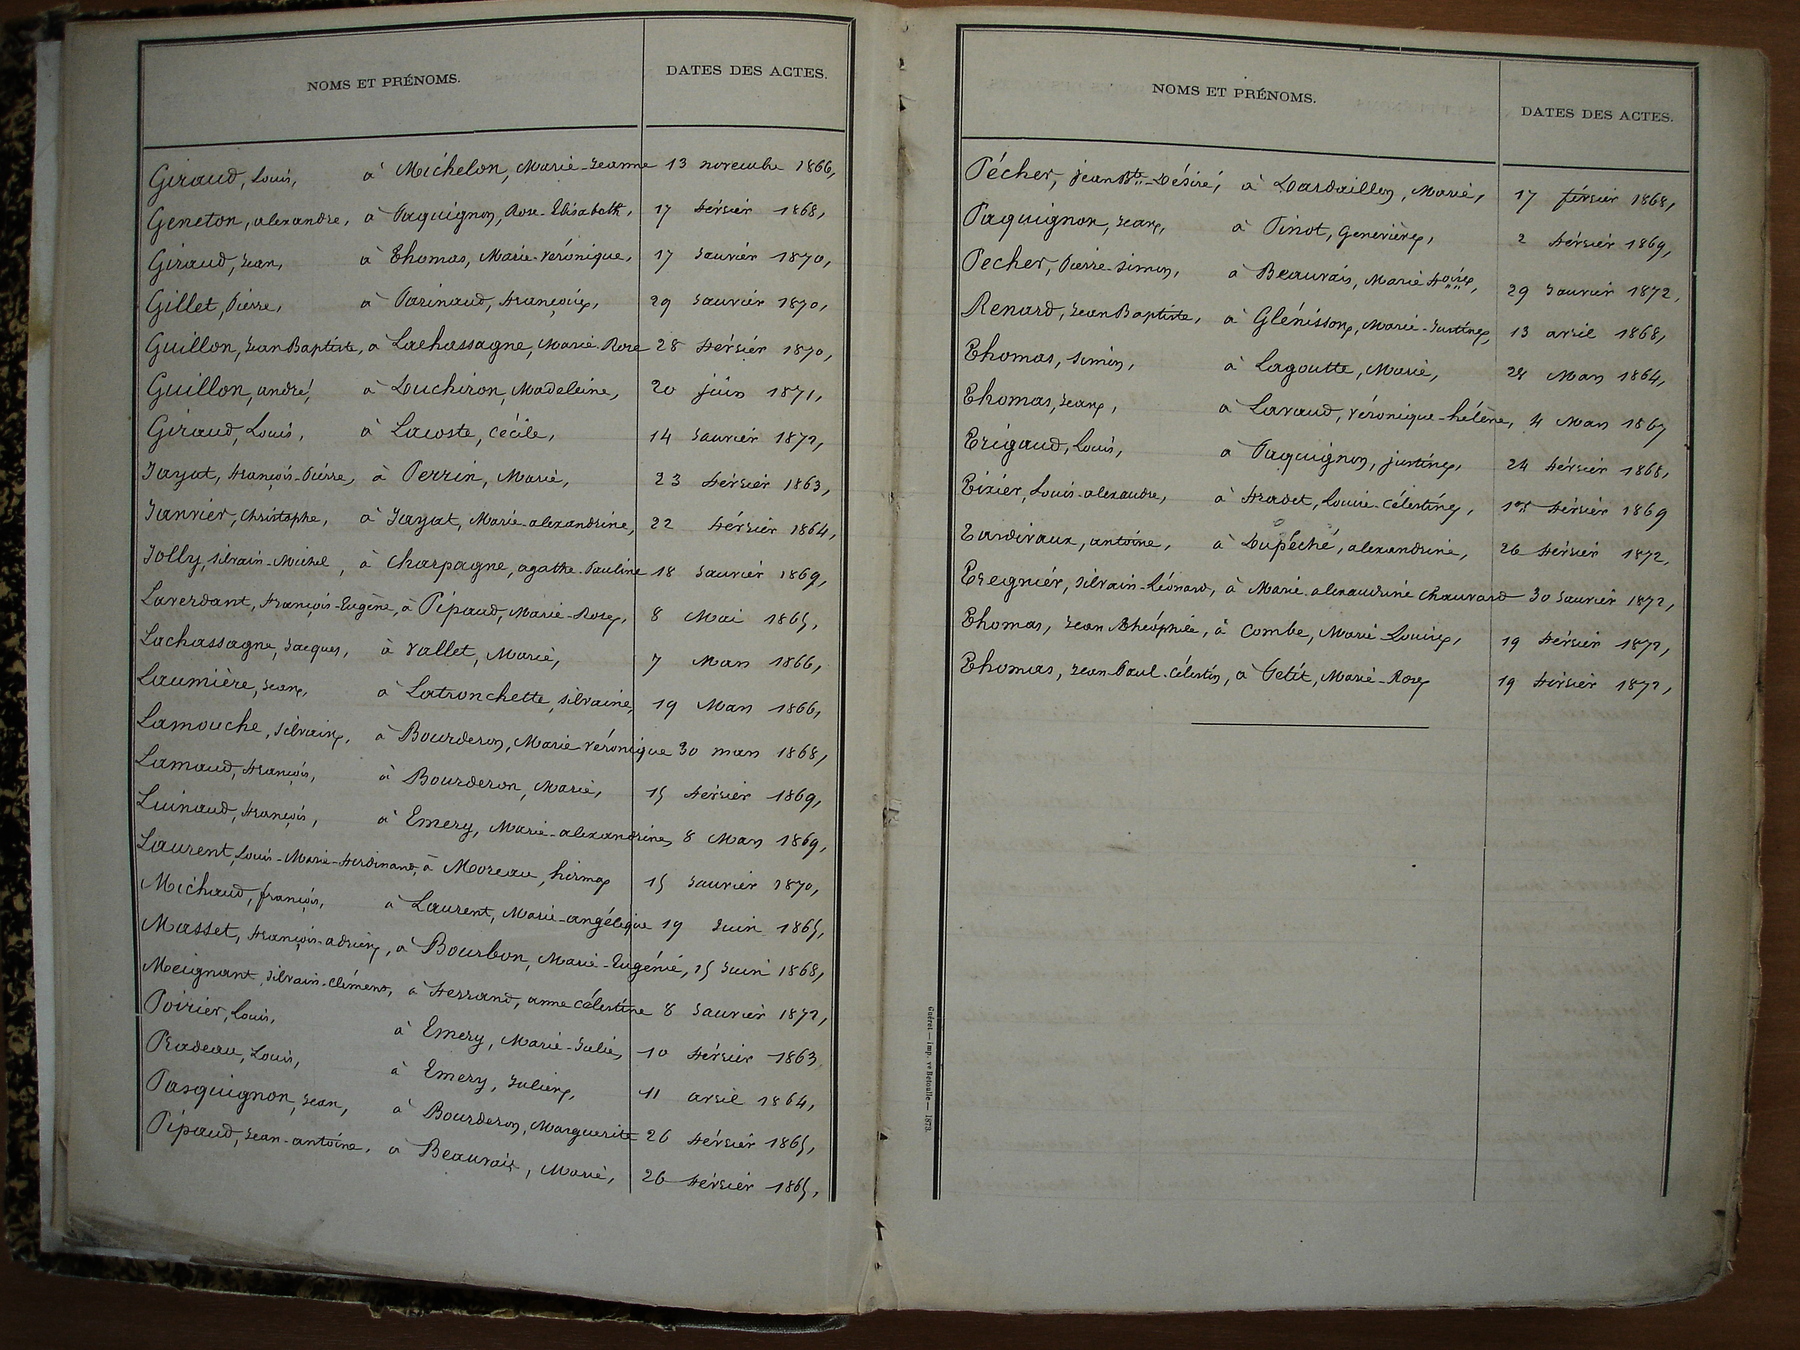 NOMS ET PRÉNOMS. DATES DES ACTES.
Giraud, Louis, à Michelon, Marie-Jeanne 13 novembre 1866,
Geneton, alexandre, à Paquignon, Rose-Elisabeth, 17 février 1868,
Giraud, Jean, à Thomas, Marie-Véronique, 17 Janvier 1870,
Gillet, Pierre, à Parinaud, Françoise, 29 Janvier 1870,
Guillon, Jean Baptiste, à Lachassagne, Marie-Rose 28 Février 1870,
Guillon, andré, à Duchiron, Madeleine, 20 juin 1871,
Giraud, Louis, à Lacoste, Cécile, 14 Janvier 1872,
Jayat, François-Pierre, à Perrin, Marie, 23 Février 1863,
Janvier, Christophe, à Jayat, Marie-alexandrine, 22 Février 1864,
Jolly, Silvain-Michel, à Charpagne, agathe-Pauline 18 Janvier 1869,
Laverdant, François-Eugène, à Pipaud, Marie-Rose, 8 Mai 1865,
Lachassagne, Jacques, à Vallet, Marie, 7 Mars 1866,
Laumière, Jean, à Latronchette, Silvaine, 19 Mars 1866,
Lamouche, Silvain, à Bourderon, Marie Véronique 30 mars 1868,
Lamaud, François, à Bourderon, Marie, 15 Février 1869,
Luinaud, François, à Emery, Marie-alexandrine, 8 Mars 1869,
Laurent, Louis-Marie-Ferdinand, à Moreau, hirma 15 Janvier 1870,
Michaud, françois, à Laurent, Marie-angélique 19 Juin 1865,
Masset, François-adrien, à Bourbon, Marie-Eugénie, 15 Juin 1868,
Meignant, Silvain-Clément, à Ferrand, anne Célestine 8 Janvier 1872,
Poirier, Louis, à Emery, Marie-Julie, 10 Février 1863
Pradeau, Louis, à Emery, Julienne, 11 avril 1864,
Pasquignon, Jean, à Bourderon, Marguerite 26 Février 1865,
Pipaud, Jean-antoine, à Beauvais, Marie, 26 Février 1865,
NOMS ET PRÉNOMS. DATES DES ACTES.
Pécher, jean Bte-Désiré, à Dardaillon, Marie, 17 février 1868,
Paquignon, Jean, à Pinot, Geneviève, 2 Février 1869,
Pecher, Pierre-Simon, à Beauvais, Marie Foise, 29 Janvier 1872,
Renard, Jean Baptiste, à Glénisson, Marie-Justine, 13 avril 1868,
Thomas, Simon, à Lagoutte, Marie, 28 Mars 1864,
Thomas, Jean, à Lavaud, Véronique-hélène, 4 Mars 1867
Trigaud, Louis, à Paquignon, justine, 24 Février 1868,
Tixier, Louis-alexandre, à Fradet, Louise-Célestine, 1er Février 1869
Tardivaux, antoine, à Dupéché, alexandrine, 26 Février 1872,
Treignier, Silvain-Léonard, à Marie-alexandrine Chauvard 30 Janvier 1872,
Thomas, Jean Théophile, à Combe, Marie-Louise, 19 Février 1872,
Thomas, Jean-Paul-Célestin, à Petit, Marie-Rose 19 Février 1872,
Guéret.—imp. ve Betoulle.— 1873.